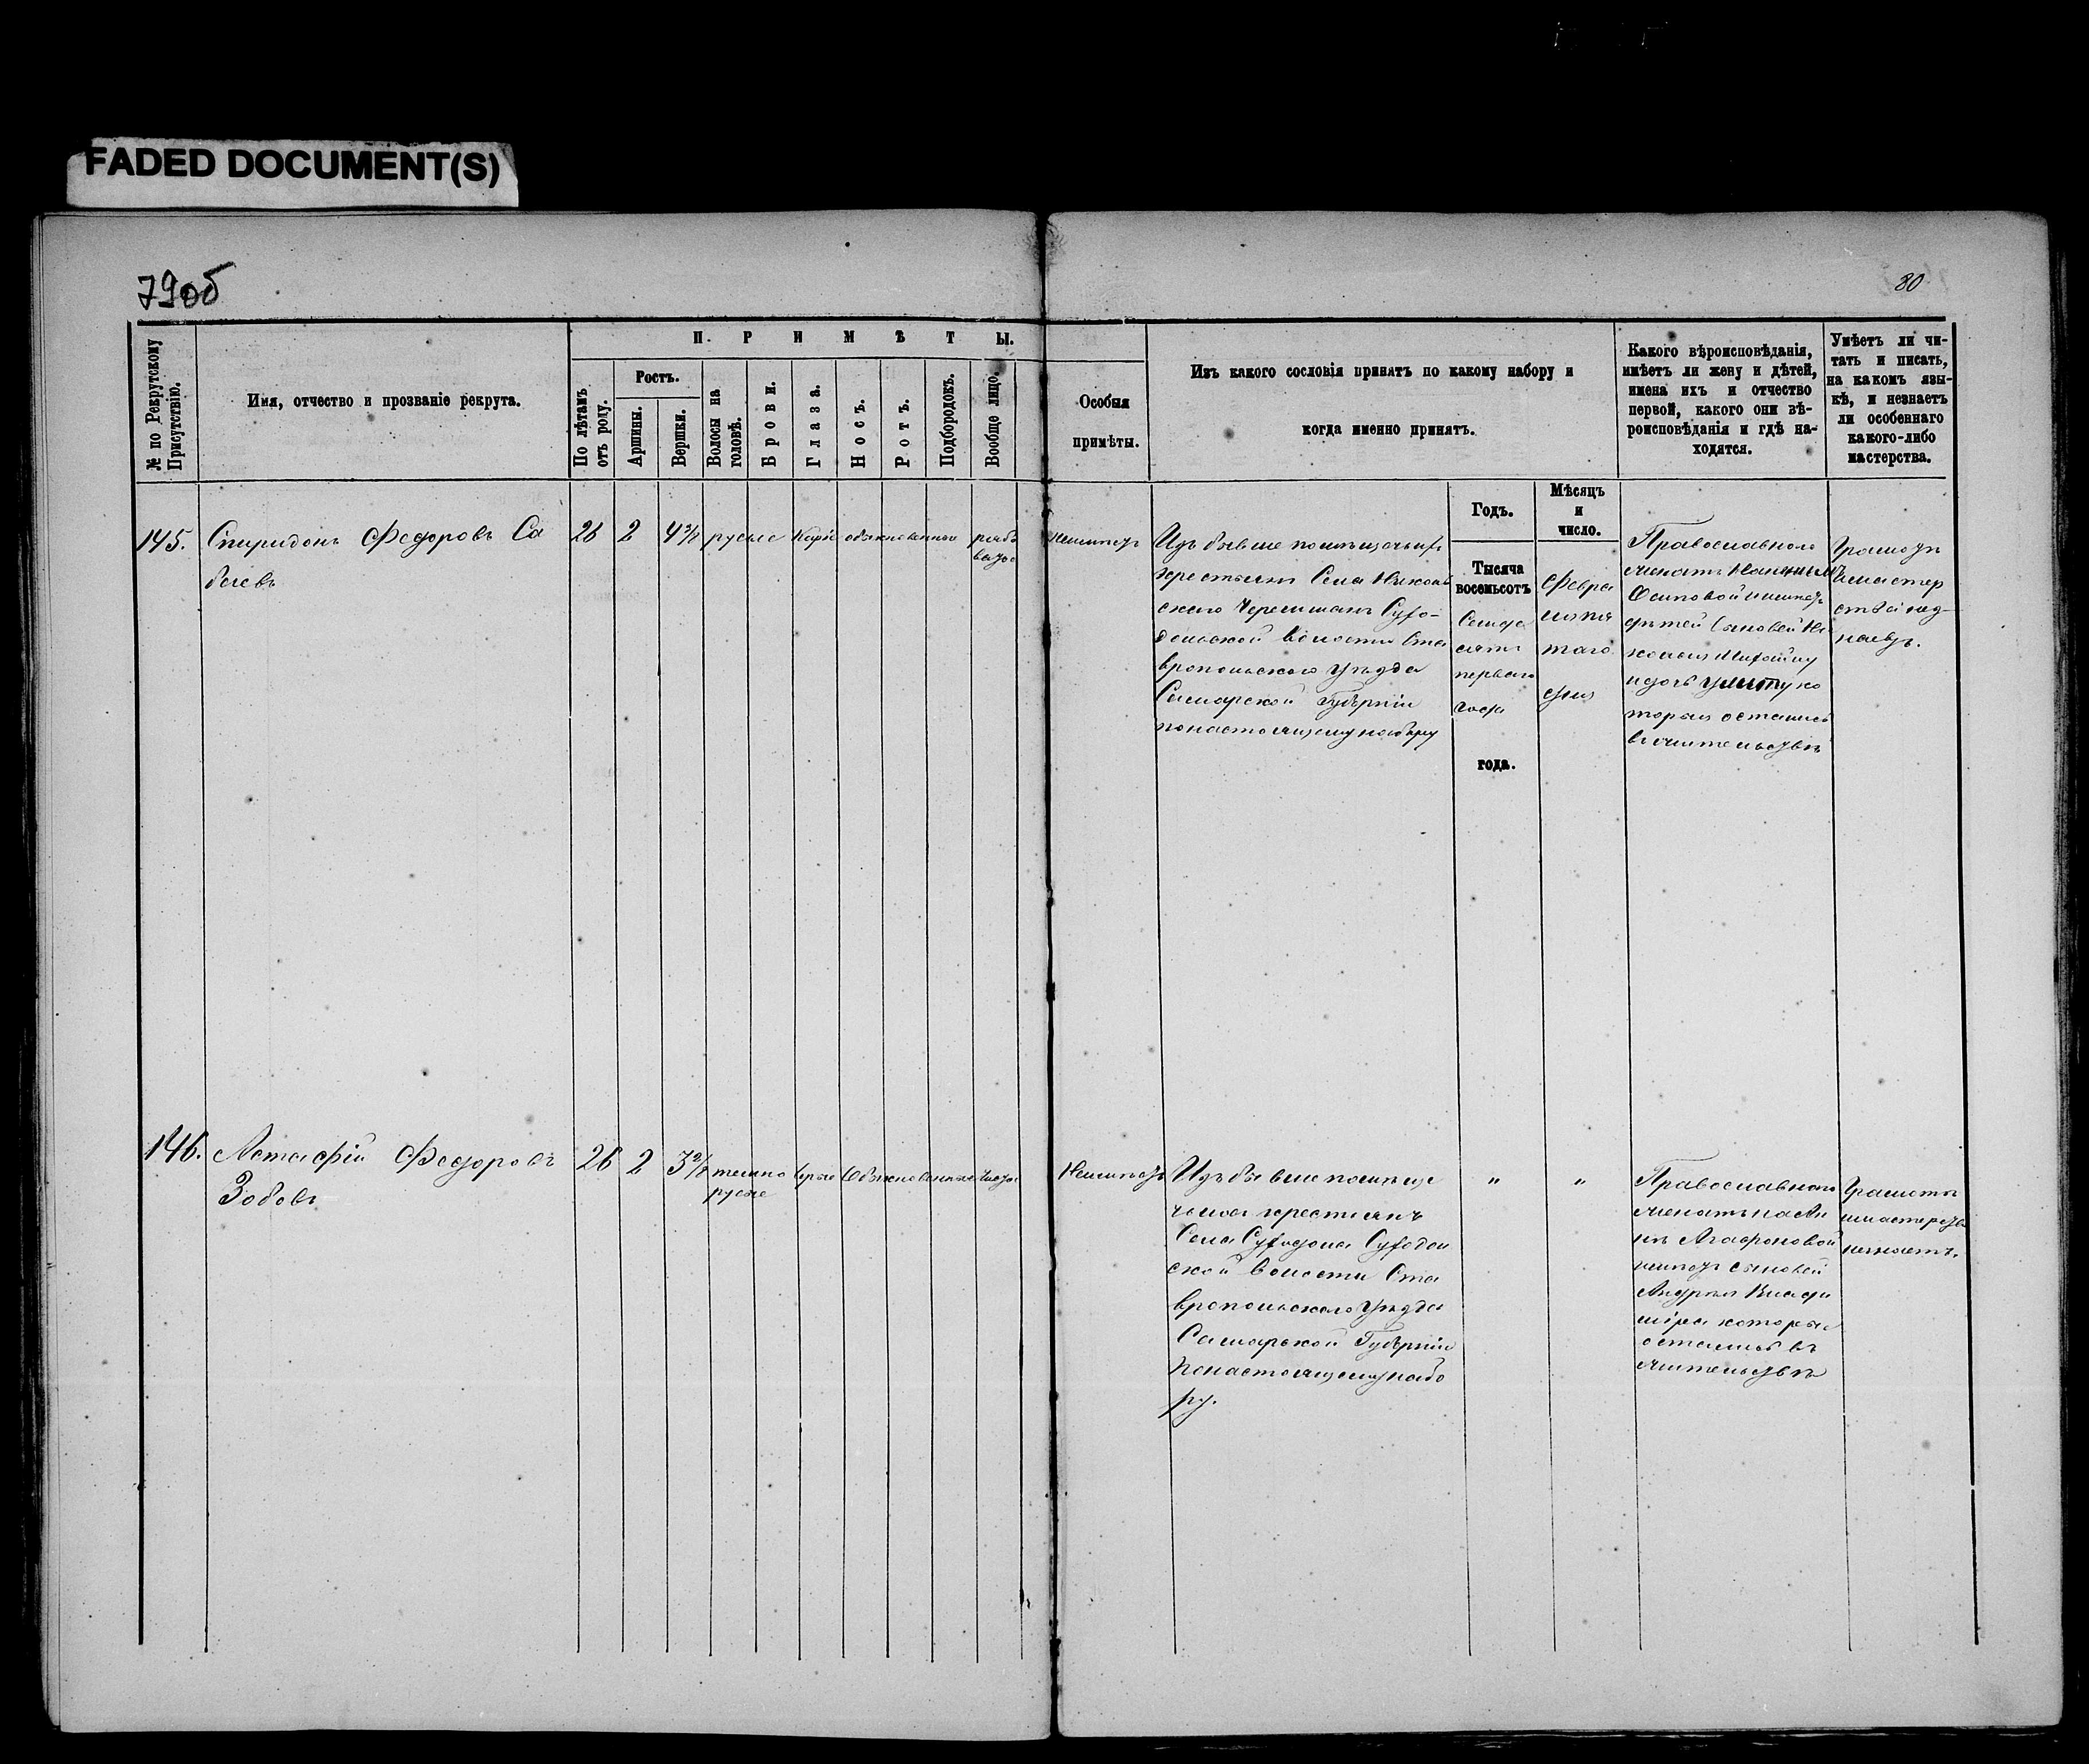 FADED DOCUMENT(S)
79об
80
№ по Рекрутскому Присутствію.
Имя, отчество и прозваніе рекрута.
ПРИМѢТЫ.
По лѣтамъ отъ роду.
Ростъ.
Аршины.
Вершки.
Волосы на головѣ.
Брови.
Глаза.
Носъ.
Ротъ.
Подбородокъ.
Вообще лицо.
Особыя
примѣты.
Изъ какого сословія принятъ по какому набору и
когда именно принятъ.
Какого вѣроисповѣданія,
имѣетъ ли жену и дѣтей,
имена ихъ и отчество
первой, какого они вѣ-
роисповѣданія и гдѣ на-
ходятся.
Умѣетъ ли чи-
тать и писать,
на какомъ язы-
кѣ, и незнаетъ
ли особеннаго
какого-либо
мастерства.
Годъ.
Мѣсяцъ
и
число.
145.
Спиридонъ Федоровъ Са
26 2 4 русые Каріе обыкновенный
Неимѣетъ
Изъ бывше помѣщичьихъ
крестьянъ Села Николь
скаго Черемшанъ Сухо-
дольской волости Ста
вропольскаго Уѣзда
Самарской Губерніи
понастоящему набору
Тысяча
восемьсотъ
Семьде
сятъ
перваго
года
года.
Февра
ля пя
таго
дня
Православнаго
женатъ
Осиповой имѣетъ
дѣтей Сыновей Ни
которыя остались
въ жительствѣ
Грамотѣ
имастер
ства не
знаетъ.
146.
Астафій Федоровъ
Зобовъ
26 2 3 темно русые Обыкновенные
Неимѣетъ
Изъ бывше помѣщи
чьихъ крестьянъ
Села Суходола Суходол
ской волости Ста
вропольскаго Уѣзда
Самарской Губерніи
Понастоящему набо
ру.
" "
Православнаго
женатъ на Ан
нѣ Агафоновой
имѣетъ сыновей
Андрея Влади
міра которые
остались въ
жительствѣ
Грамотѣ
имастерства
незнаетъ.